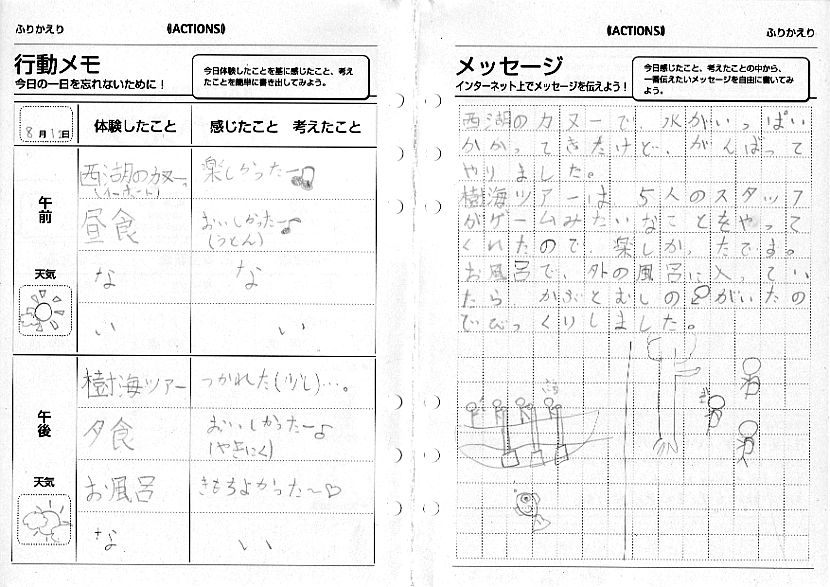 ふりかえり
《ACTIONS》
行動メモ
今日の一日を忘れないために！
今日体験したことを基に感じたこと、考え
たことを簡単に書き出してみよう。
8月1日
体験したこと
感じたこと 考えたこと
午前
天気
西湖のカヌー
楽しかったー♫
昼食
おいしかったー♪
(うどん)
な
な
い
い
午後
天気
樹海ツアー
つかれた(少し)…。
夕食
おいしかったー♪
(やきにく)
お風呂
きもちよかった～♡
な
い
《ACTIONS》
ふりかえり
メッセージ
インターネット上でメッセージを伝えよう！
今日感じたこと、考えたことの中から、
一番伝えたいメッセージを自由に書いてみ
よう。
西湖のカヌーで、水がいっぱい
かかってきたけど、がんばって
やりました。
樹海ツアーは、5人のスタッフ
がゲームみたいなことをやって
くれたので、楽しかったです。
お風呂で、外の風呂に入ってい
たら かぶとむしの がいたの
でびっくりしました。